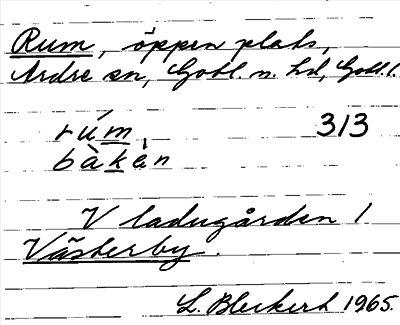 Rum, öppen plats,
Ardre sn, Gotl. n. hd, Gotl. l.
rúm 313
bàkàn
V ladugården 1
Västerby.
L. Bleckert 1965.